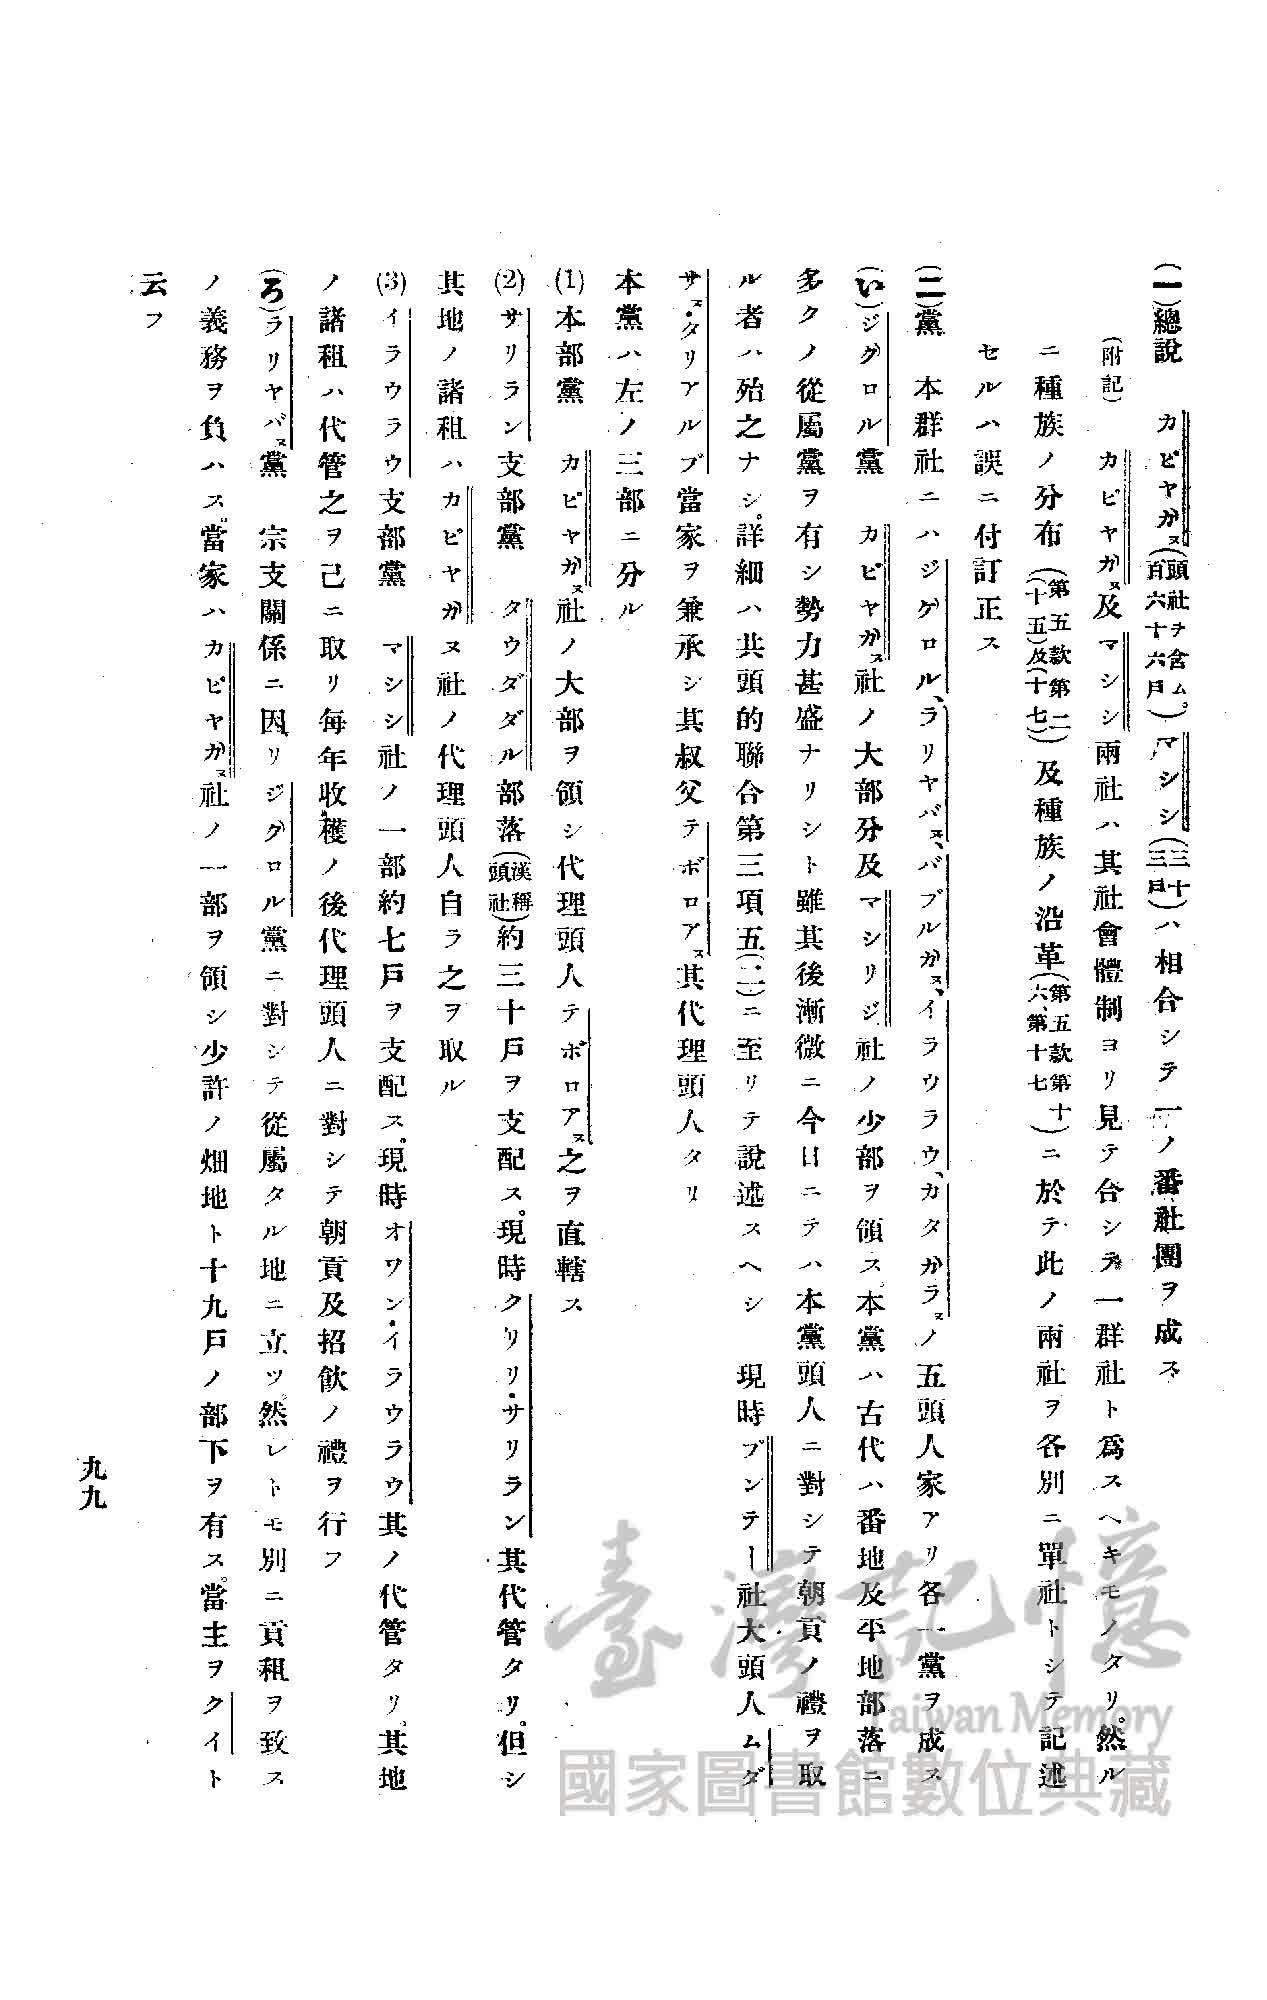 (一)總說　カピヤガㇴ(頭社ヲ含ム。百六十六戶)マシシ(三十三戶)ハ相合シテ一ノ番社團ヲ成ス
(附記)　カピヤガㇴ及マシシ兩社ハ其社會體制ヨリ見テ合シテ一群社ト爲スヘキモノタリ。然ル
ニ種族ノ分布(第五款第二(十五)及(十七))及種族ノ沿革(第五款第十六、第十七)ニ於テ此ノ兩社ヲ各別ニ單社トシテ記述
セルハ誤ニ付訂正ス
(二)黨　本群社ニハジグロル、ラリヤバㇴ、バブルガㇴ、イラウラウ、カタガラㇴノ五頭人家アリ各一黨ヲ成ス
(い)ジグロル黨　カピヤガㇴ社ノ大部分及マシリジ社ノ少部ヲ領ス。本黨ハ古代ハ番地及平地部落ニ
多クノ從屬黨ヲ有シ勢力甚盛ナリシト雖其後漸微ニ今日ニテハ本黨頭人ニ對シテ朝貢ノ禮ヲ取
ル者ハ殆之ナシ。詳細ハ共頭的聯合第三項五(二)ニ至リテ說述スヘシ　現時ブンテー社大頭人ムダ
サㇴ・タリアルブ當家ヲ兼承シ其叔父テボロアㇴ其代理頭人タリ
本黨ハ左ノ三部ニ分ル
(1)本部黨　カピヤガㇴ社ノ大部ヲ領シ代理頭人テボロアㇴ之ヲ直轄ス
(2)サリラン支部黨　タウダダル部落(漢稱頭社)約三十戶ヲ支配ス。現時クリリ・サリラン其代管タリ。但シ
其地ノ諸租ハカピヤガヌ社ノ代理頭人自ラ之ヲ取ル
(3)イラウラウ支部黨　マシシ社ノ一部約七戶ヲ支配ス。現時オワン・イラウラウ其ノ代管タリ。其地
ノ諸租ハ代管之ヲ己ニ取リ每年收穫ノ後代理頭人ニ對シテ朝貢及招飮ノ禮ヲ行フ
(ろ)ラリヤバㇴ黨　宗支關係ニ因リジグロル黨ニ對シテ從屬タル地ニ立ツ。然レトモ別ニ貢租ヲ致ス
ノ義務ヲ負ハス。當家ハカピヤガㇴ社ノ一部ヲ領シ少許ノ畑地ト十九戶ノ部下ヲ有ス。當主ヲクイト
云フ
九九
臺灣記憶
Taiwan Memory
國家圖書館數位典藏